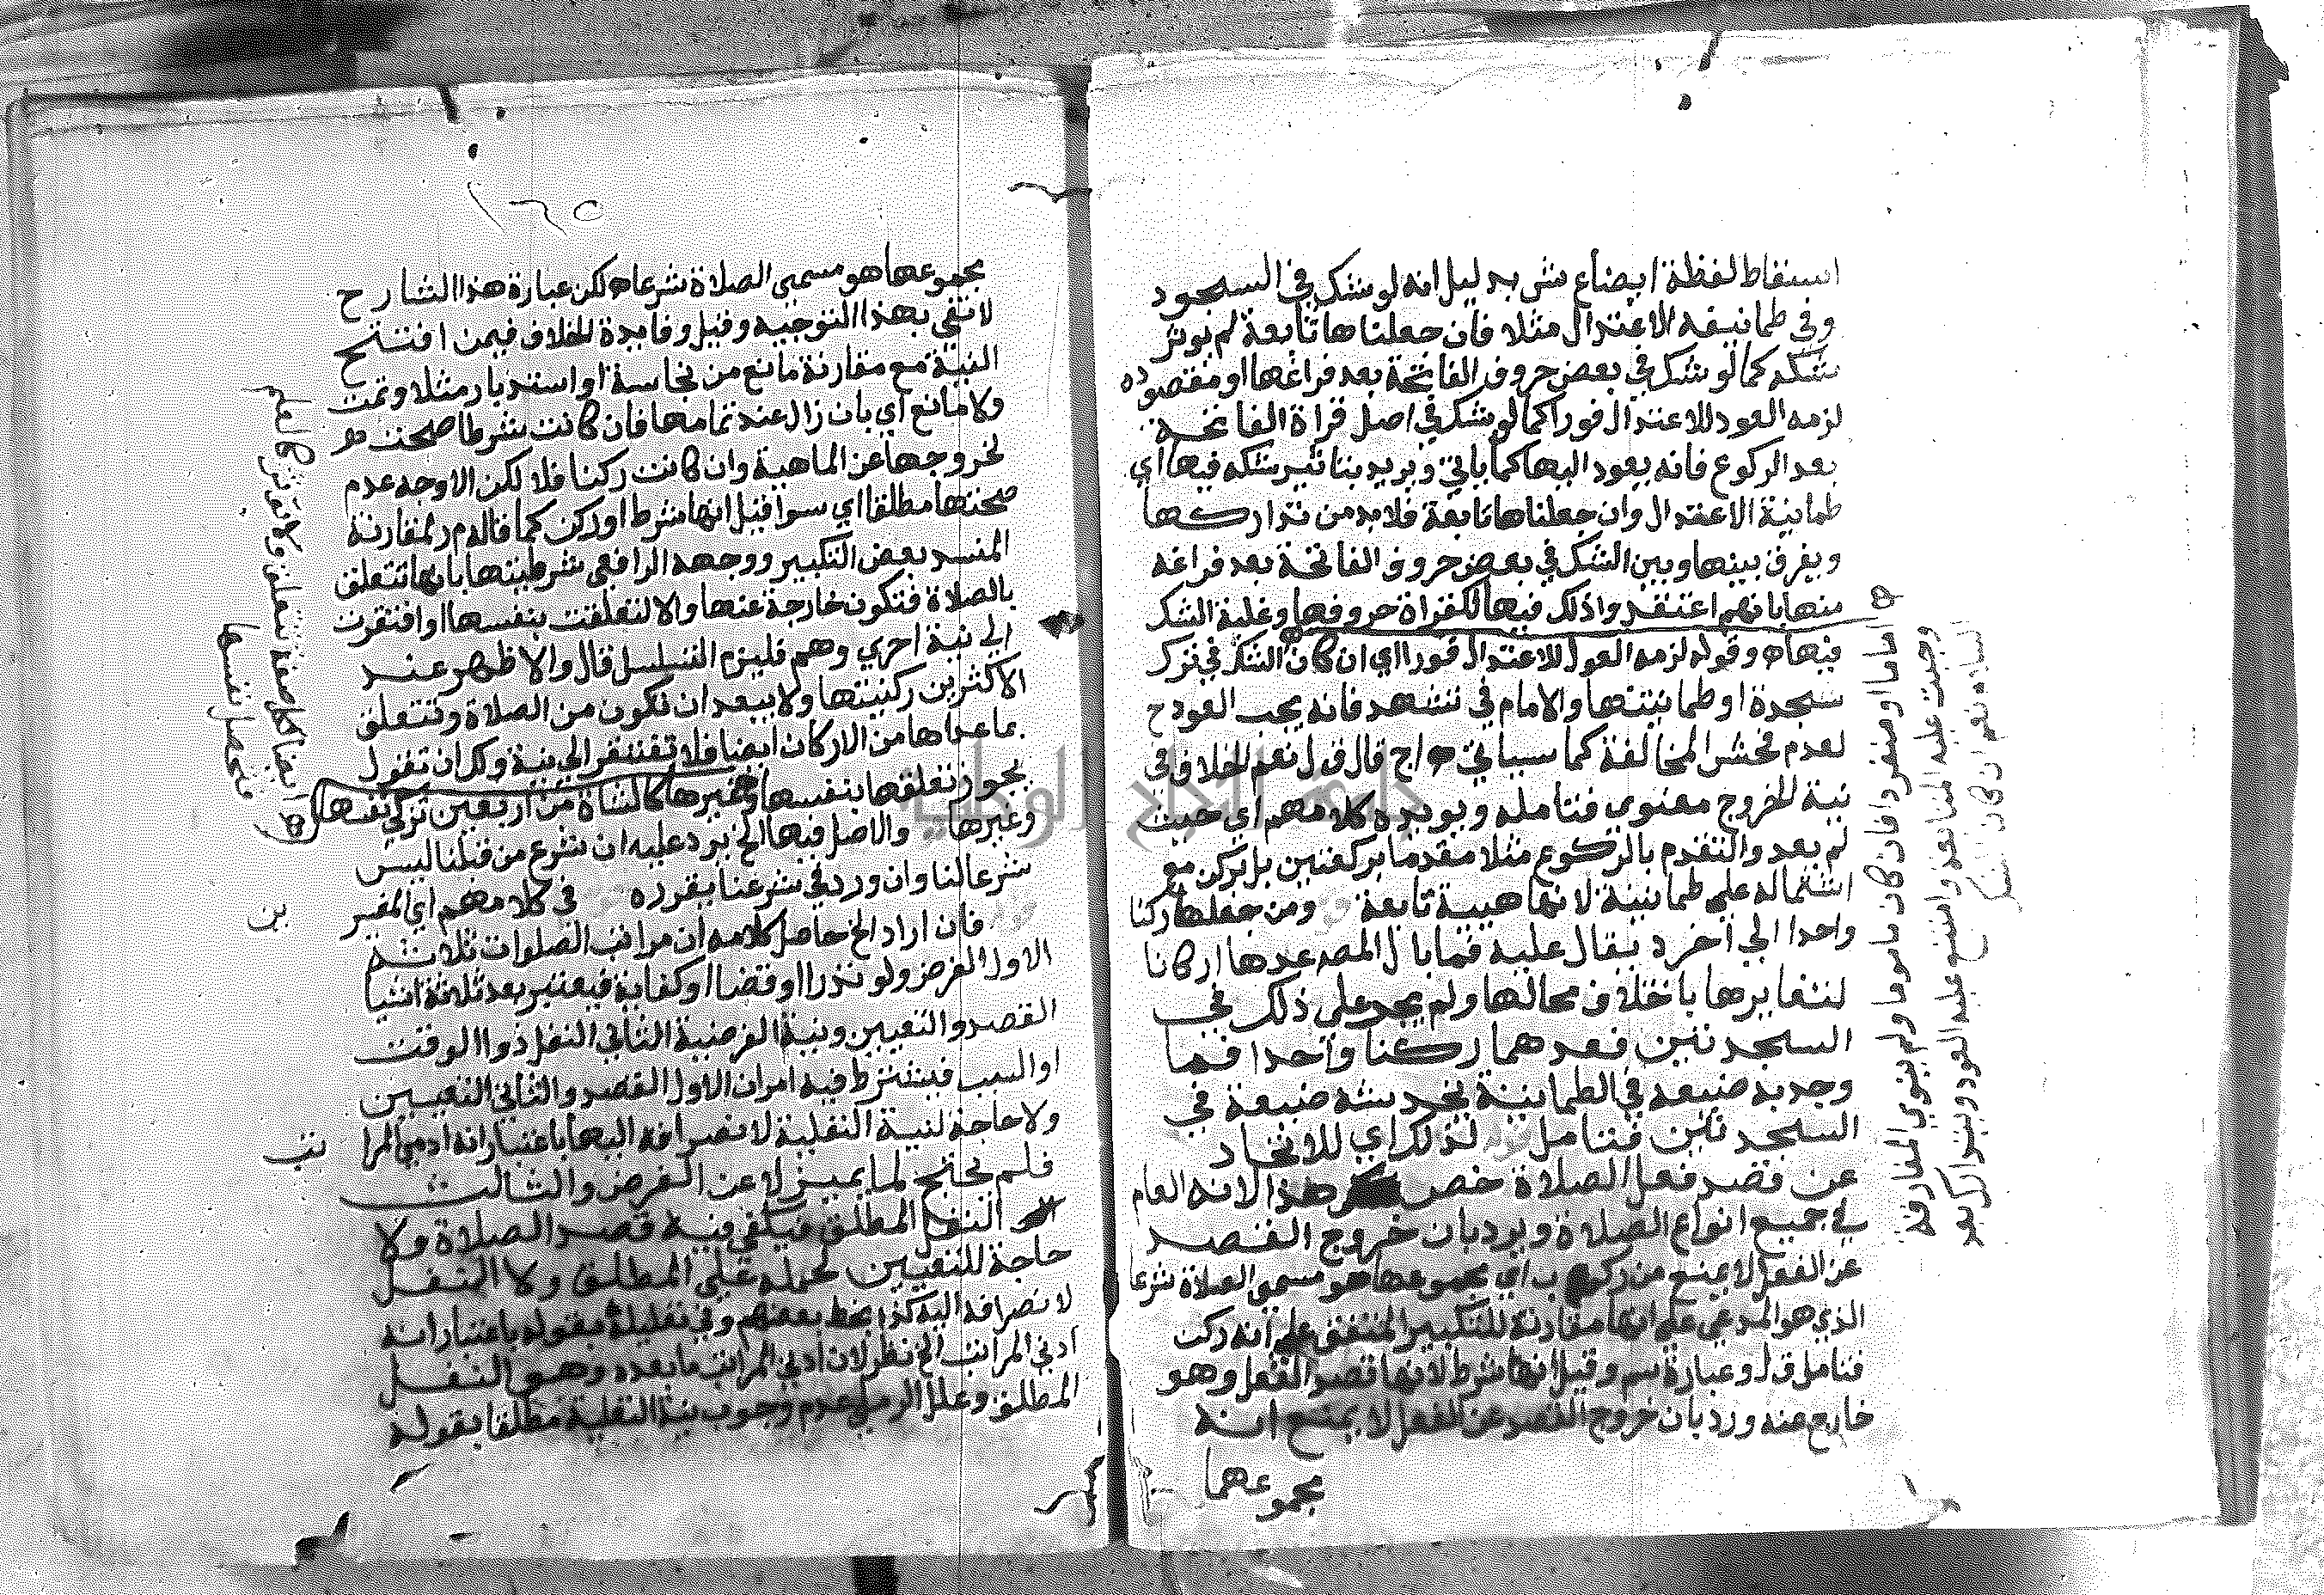 اسقاط لفظة ايضا ع ش بدليل انه لو شك في السجود
وفي طمانينة الاعتدال مثلا فان جعلناها تابعة لم يوثر
شكه كما لو شك في بعض حروف الفاتحة بعد فراغها او مقصودة
لزمه العود للاعتدال فورا كما لو شك في اصل قراة الفاتحة
بعد الركوع فانه يعود اليها كما ياتي ويريد بتاثير شكه فيها اي
طمانينة الاعتدال وان جعلناها تابعة فلا بد من تداركها
ويفرق بينها وبين الشك في بعض حروف الفاتحة بعد فراغه
منها بانهم اغتفروا ذلك فيها لكثرة حروفها وغلبة الشك
فيها اه وقوله لزمه العود للاعتدال فورا اي ان كان الشك في ترك
سجدة او طمانينتها والامام في تشهد فانه يجب العود ح
لعدم فحش المخالفة كما سياتي اه اج قال ق ل نعم للخلاف في
نية الخروج معنوى فتامله ويويده كلامهم اي حيث
لم يعد والتقدم بالركوع مثلا مقدما بركنين بل بركن مع
اشتماله على طمانينة لانها هيية تابعة ومن جعلها ركنا
واحدا الى اخره يقال عليه فما بال المصـ عدها اركانا
لتغايرها باختلاف محالها ولم يجر على ذلك في
السجدتين فعدهما ركنا واحدا فما
وجه به صنيعه في الطمانينة يخدشه صنيعة في
السجدتين فتامل لذلك اي للاتحاد
عن قصد فعل الصلاة خص هذا لانه العام
في جميع انواع الصلاة ويرد بان خروج القصد
عن الفعل لا يمنع من ركنه ب اي مجموعها هو مسمى الصلاة شرعا
الذي هو المدعى على انها مقارنة للتكبير المتفق على انه ركن
فتامل ق ل وعبارة سم وقيل انها شرط لانها قصد الفعل وهو
خارج عنه ورد بان خروج القصد عن الفعل لا يمنع انه
مجموعهما
اماما او منفردا فان كان ماموما ولم ينوي المفارقة
وجبت عليه المتابعة وامتنع عليه العود ويتدارك بعد
السلام نعم ان كان الشك
١٦٥
مجموعها هو مسمى الصلاة شرعا اه لكن عبارة هذا الشارح
لا تفي بهذا التوجيه وقيل وفايدة الخلاف فيمن افتتح
النية مع مقارنة مانع من نجاسة او استدبار مثلا وتمت
ولا مانع اي بان زال عند تمامها فان كانت شرطا صحت
لخروجها عن الماهية وان كانت ركنا فلا لكن الاوجه عدم
صحتها مطلقا اي سوا قيل انها شرط او ركن كما قاله م ر لمقارنة
المفسد بعض التكبير ووجهه الرافعي شرطيتها بانها تتعلق
بالصلاة فتكون خارجة عنها والا لتعلقت بنفسها او افتقرت
الى نية اخري وهم فليزم التسلسل قال والاظهر عند
الاكثرين ركنيتها ولا يبعد ان تكون من الصلاة وتتعلق
بما عداها من الاركان ايضا فلا تفتقر الى نية ولك ان تقول
يجوز تعلقها بنفسها وغيرها كالشاة من اربعين تزكي نفسها
وغيرها والاصل فيها الخ يرد عليه ان شرع من قبلنا ليس
شرعا لنا وان ورد في شرعنا يقرره في كلامهم اي المفسر
ين
فان اراد الخ حاصل كلامه ان مراتب الصلوات ثلاثة
الاول الفرض ولو نذرا او قضا او كفاية فيعتبر بعد ثلاثة اشيا
القصد والتعيين ونية الفرضية الثاني النفل ذو الوقت
او السبب فيشترط فيه امران الاول القصد والثاني التعيين
ولا حاجة لنية النفلية لانصرافه اليها باعتبار انه ادني المرا
تب
فلم يحتج لما يميزه لا عن الفرض والثالث
النفل المطلق فيكفي فيه قصد الصلاة ولا
حاجة للتعيين لحمله على المطلق ولا النفل
لانصرافه اليه كذا بخط بعضهم وفي تعليله بقوله باعتبار انه
ادني المراتب الخ نظر لان ادني المراتب ما بعده وهو النفل
المطلق وعلل الرملي عدم وجوب نية النفلية مطلقا بقوله
ايضا كل صفة تتعلق ولا تؤثر كالعلم
فتحصل نفسها